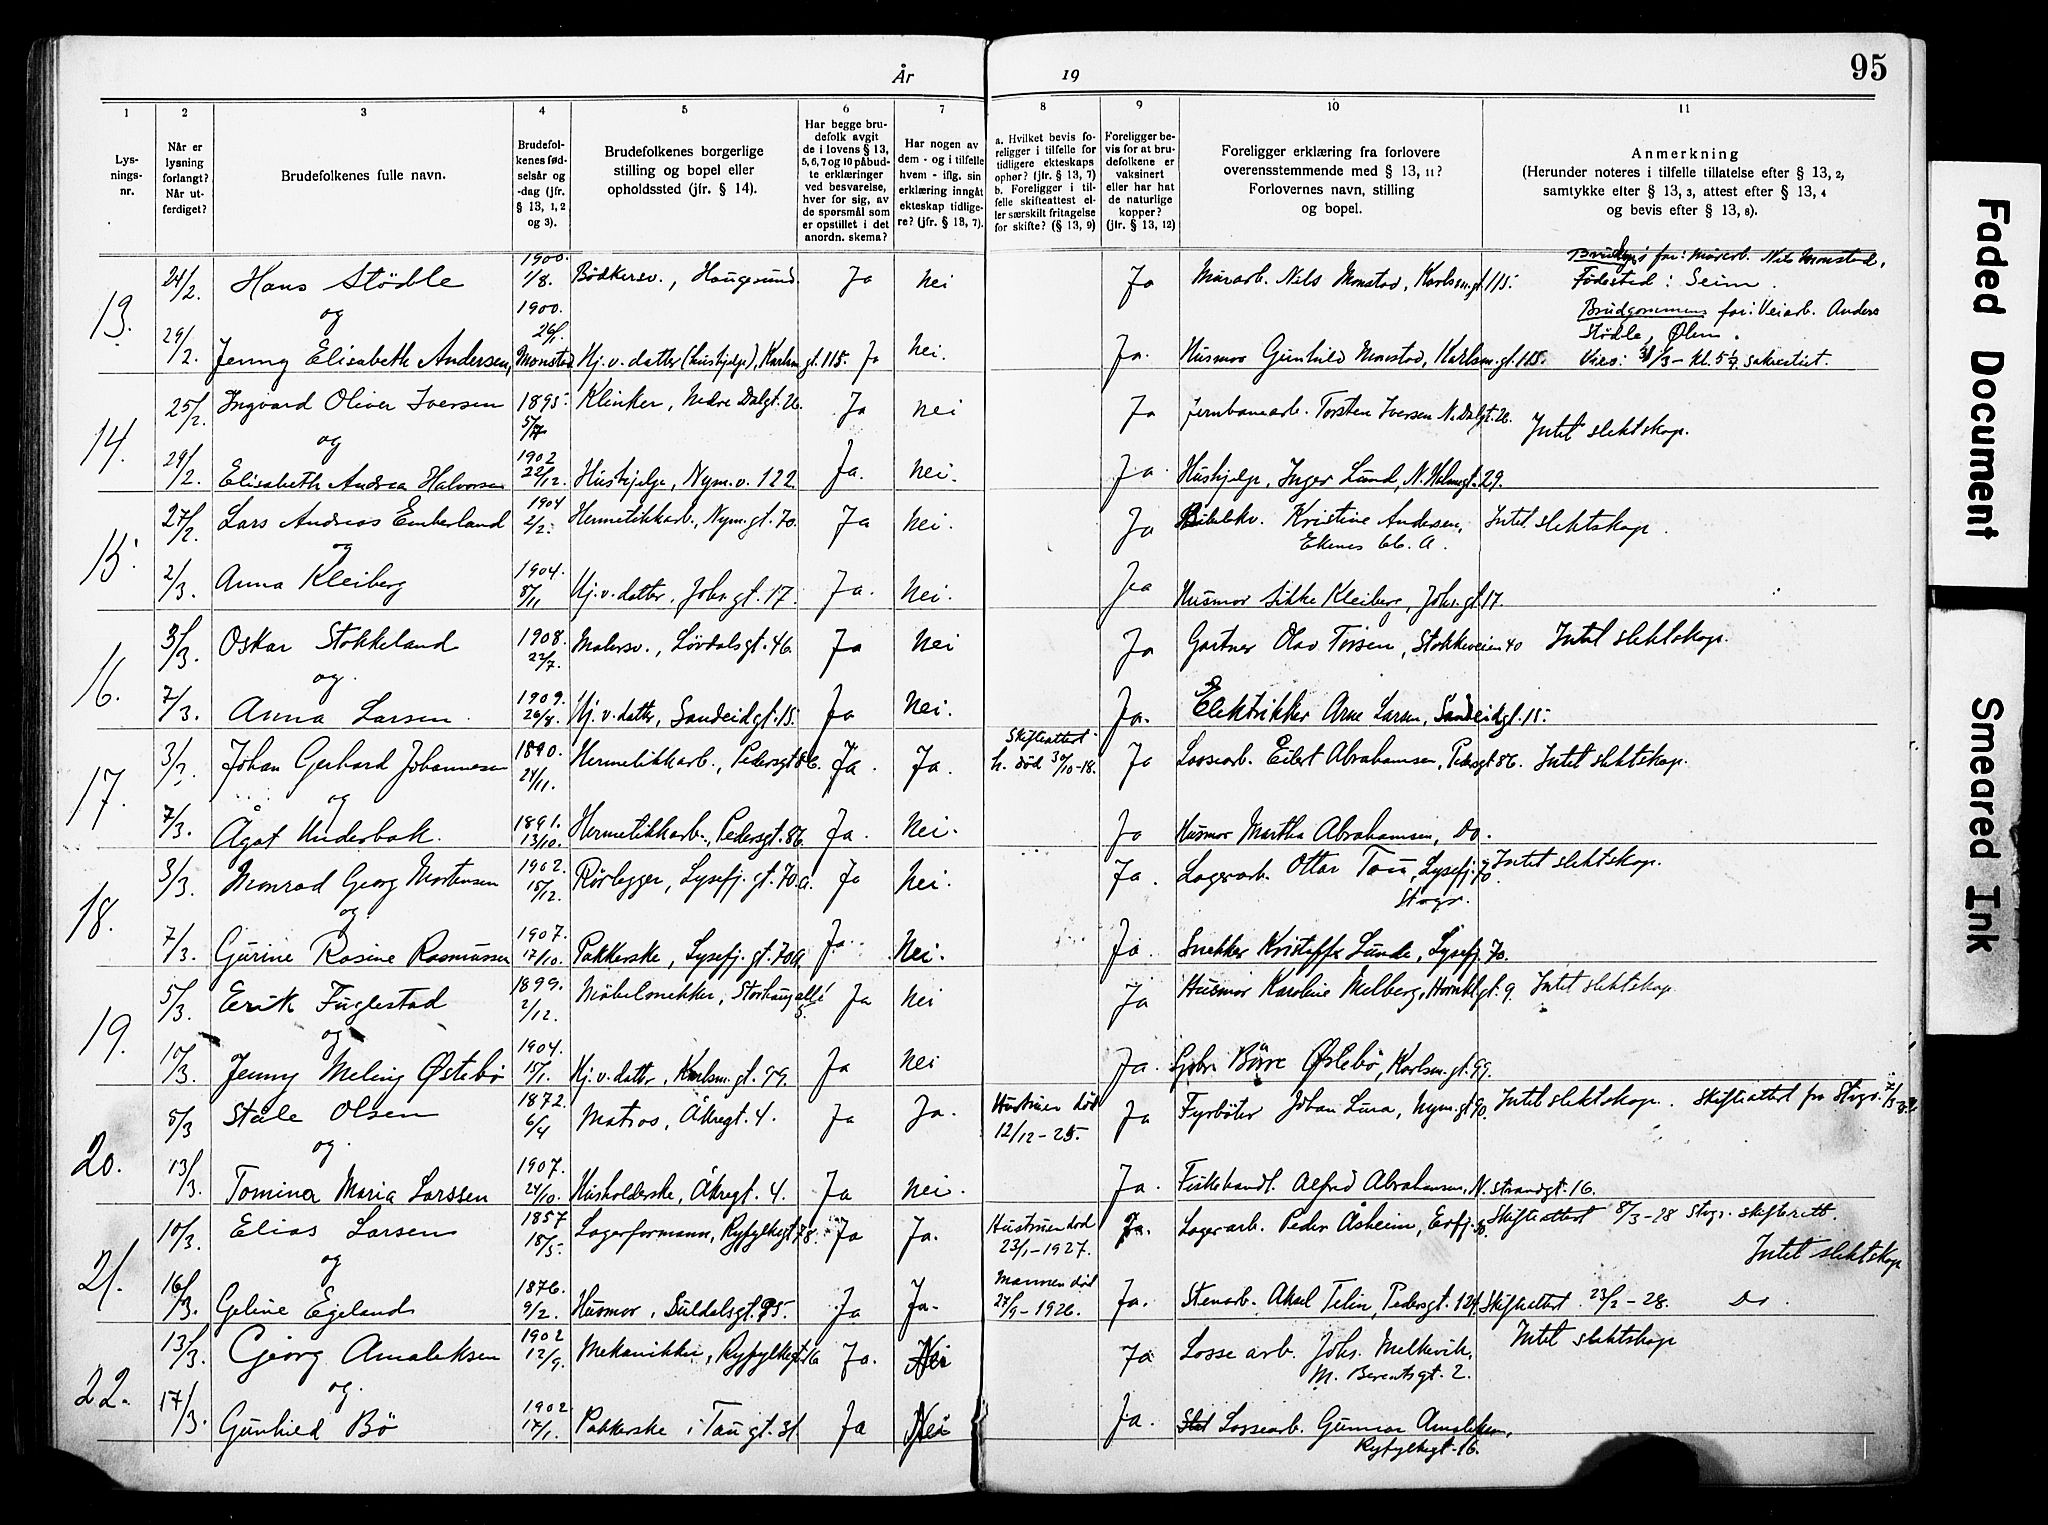 År 19 95
1 2 3 4 5 6 7 8 9 10 11
Lys-
nings-
nr.
Når er
lysning
forlangt?
Når ut-
ferdiget?
Brudefolkenes fulle navn.
Brudefol-
kenes fød-
selsår og
-dag (jfr.
§ 13, 1, 2
og 3).
Brudefolkenes borgerlige
stilling og bopel eller
opholdssted (jfr. § 14).
Har begge bru-
defolk avgit
de i lovens § 13,
5, 6, 7 og 10 påbud-
te erklæringer
ved besvarelse,
hver for sig, av
de spørsmål som
er opstillet i det
anordn. skema?
Har nogen av
dem - og i tilfelle
hvem - iflg. sin
erklæring inngått
ekteskap tidlige-
re? (jfr. § 13, 7).
a. Hvilket bevis fo-
religger i tilfelle for
tidligere ekteskaps
ophør? (jfr. § 13, 7)
b. Foreligger i til-
felle skifteattest el-
ler særskilt fritagelse
for skifte? (§ 13, 9)
Foreligger be-
vis for at bru-
defolkene er
vaksinert
eller har hat
de naturlige
kopper?
(jfr. § 13, 12)
Foreligger erklæring fra forlovere
overensstemmende med § 13, 11?
Forlovernes navn, stilling
og bopel.
Anmerkning
(Herunder noteres i tilfelle tillatelse efter § 13, 2,
samtykke efter § 13, 3, attest efter § 13, 4
og bevis efter § 13, 8).
13. 24/2. Hans Stødle 1900. 1/8. Bødkersv., Haugesund. Ja Nei Ja Murarb. Nils Monstad, Karlsm.gt. 115.
Brudens far: Murarb. Nils Monstad,
Fødested: Seim.
og
Brudgommens far: Veiarb. Anders
Stødle, Ølen.
29/2. Jenny Elisabeth Andersen, Monstad 1900. 26/1. Hj.v. datter (hushjelp), Karlsm.gt. 115. Ja Nei. Ja. Husmor Gunhild Monstad, Karlsm.gt. 115.
14. 25/2. Ingvard Oliver Iversen 1895. Klinker, Nedre Dalgt. 26. Ja Nei Ja Jernbanearb. Torsten Iversen N. Dalgt. 26. Intet slektskap.
og
29/2. Elisabeth Andrea Halvorsen 1902 22/12. Hushjelp, Nym.v. 122 Ja. Nei. Ja. Hushjelp, Inger Lund, N. Holmegt. 29.
15. 27/2. Lars Andreas Emberland 1904 2/2. Hermetikkarb., Nym.gt. 70. Ja Nei. Ja Kristine Andersen, Intet slektskap.
Ekenes 66. A.
og
2/3. Anna Kleiberg 1904. 8/11 Hj.v. datter, Johs.gt. 17. Ja. Nei. Ja Husmor Sikke Kleiberg, Johs.gt. 17.
16. 3/3. Oskar Stokkeland 1908. 22/7. Malersv., Løvdalsgt. 46. Ja Nei Ja Gartner Olav Torsen, Stokkaveien 40 Intet slektskap.
og.
7/3. Anna Larsen. 1909. 26/8. Hj.v. datter, Sandeidgt. 15. Ja Nei. Ja. Elektrikker Arne Larsen, Sandeidgt. 15.
17. 3/3. Johan Gerhard Johannesen 1890. 24/11. Hermetikkarb., Pedersgt. 86. Ja. Ja. Skifteattest
h. død 30/10-18. Ja Lossearb. Eilert Abrahamsen, Pedersgt. 86. Intet slektskap.
og
7/3. Ågot Underbak. 1891. 13/10. Hermetikkarb., Pedersgt. 86. Ja. Nei. Ja Husmor Martha Abrahamsen, Do.
18. 3/3. Monrad Georg Mortensen 1902. 15/12. Rørlegger, Lysefj.gt. 70a. Ja Nei. Ja. Lagerarb. Ottar Tau, Lysefj. 70. Intet slektskap.
Stvgr.
og
7/3. Gurine Rosine Rasmussen 1907. 17/10. Pakkerske, Lysefj.gt. 70a. Ja. Nei. Ja. Snekker Kristoffer Lunde, Lysefj. 70.
19. 5/3. Erik Fuglestad 1899. 2/12. Møbelsnekker, Storhaug allé 5. Ja Nei Ja Husmor Karoline Melberg, Hornkl.gt. 9. Intet slektskap.
og
10/3. Jenny Meling Østebø 1904. 15/1. Hj.v. datter, Karlsm.gt. 99. Ja Nei Ja. Børre Østebø, Karlsm.gt. 99.
20. 8/3 Ståle Olsen 1872. 6/4 Matros, Åkregt. 4. Ja Ja. Hustruen død
12/12-25. Ja Fyrbøter Johan Lura, Nym.gt. 90. Intet slektskap. Skifteattest fra Stvgr.
og.
13/3. Tomina Maria Larssen 1907. 24/10. Husholderske, Åkregt. 4. Ja Nei. Ja. Fiskehandl. Alfred Abrahamsen, N. Strandgt. 16.
21. 10/3. Elias Larsen 1857 18/5. Lagerformann, Ryfylkegt. 78. Ja Ja. Hustruen død
23/1-1927. Ja. Lagerarb. Peder Åsheim, Erfj. Skifteattest 8/3-28 Stvgr. skifterett.
Intet slektskap
og
16/3. Geline Egeland 1876. 9/2. Husmor, Suldalsgt. 95. Ja Ja. Mannen død
27/9-1926. Ja. Stenarb. Aksel Telin, Pedersgt. 121. Skifteattest 23/2-28. Do.
22. 13/3. Georg Amaleksen 1902 12/9. Mekanikker, Ryfylkegt. 16 Ja. Nei Ja Lossearb. Johs. Melkevik, Intet slektskap
M. Berentsgt. 2.
og.
17/3. Gunhild Bø 1902 17/1. Pakkerske, Taugt. 31 Ja Nei Ja. Lossearb. Gunnar Amaleksen,
Ryfylkegt. 16.
Faded Document
Smeared Ink